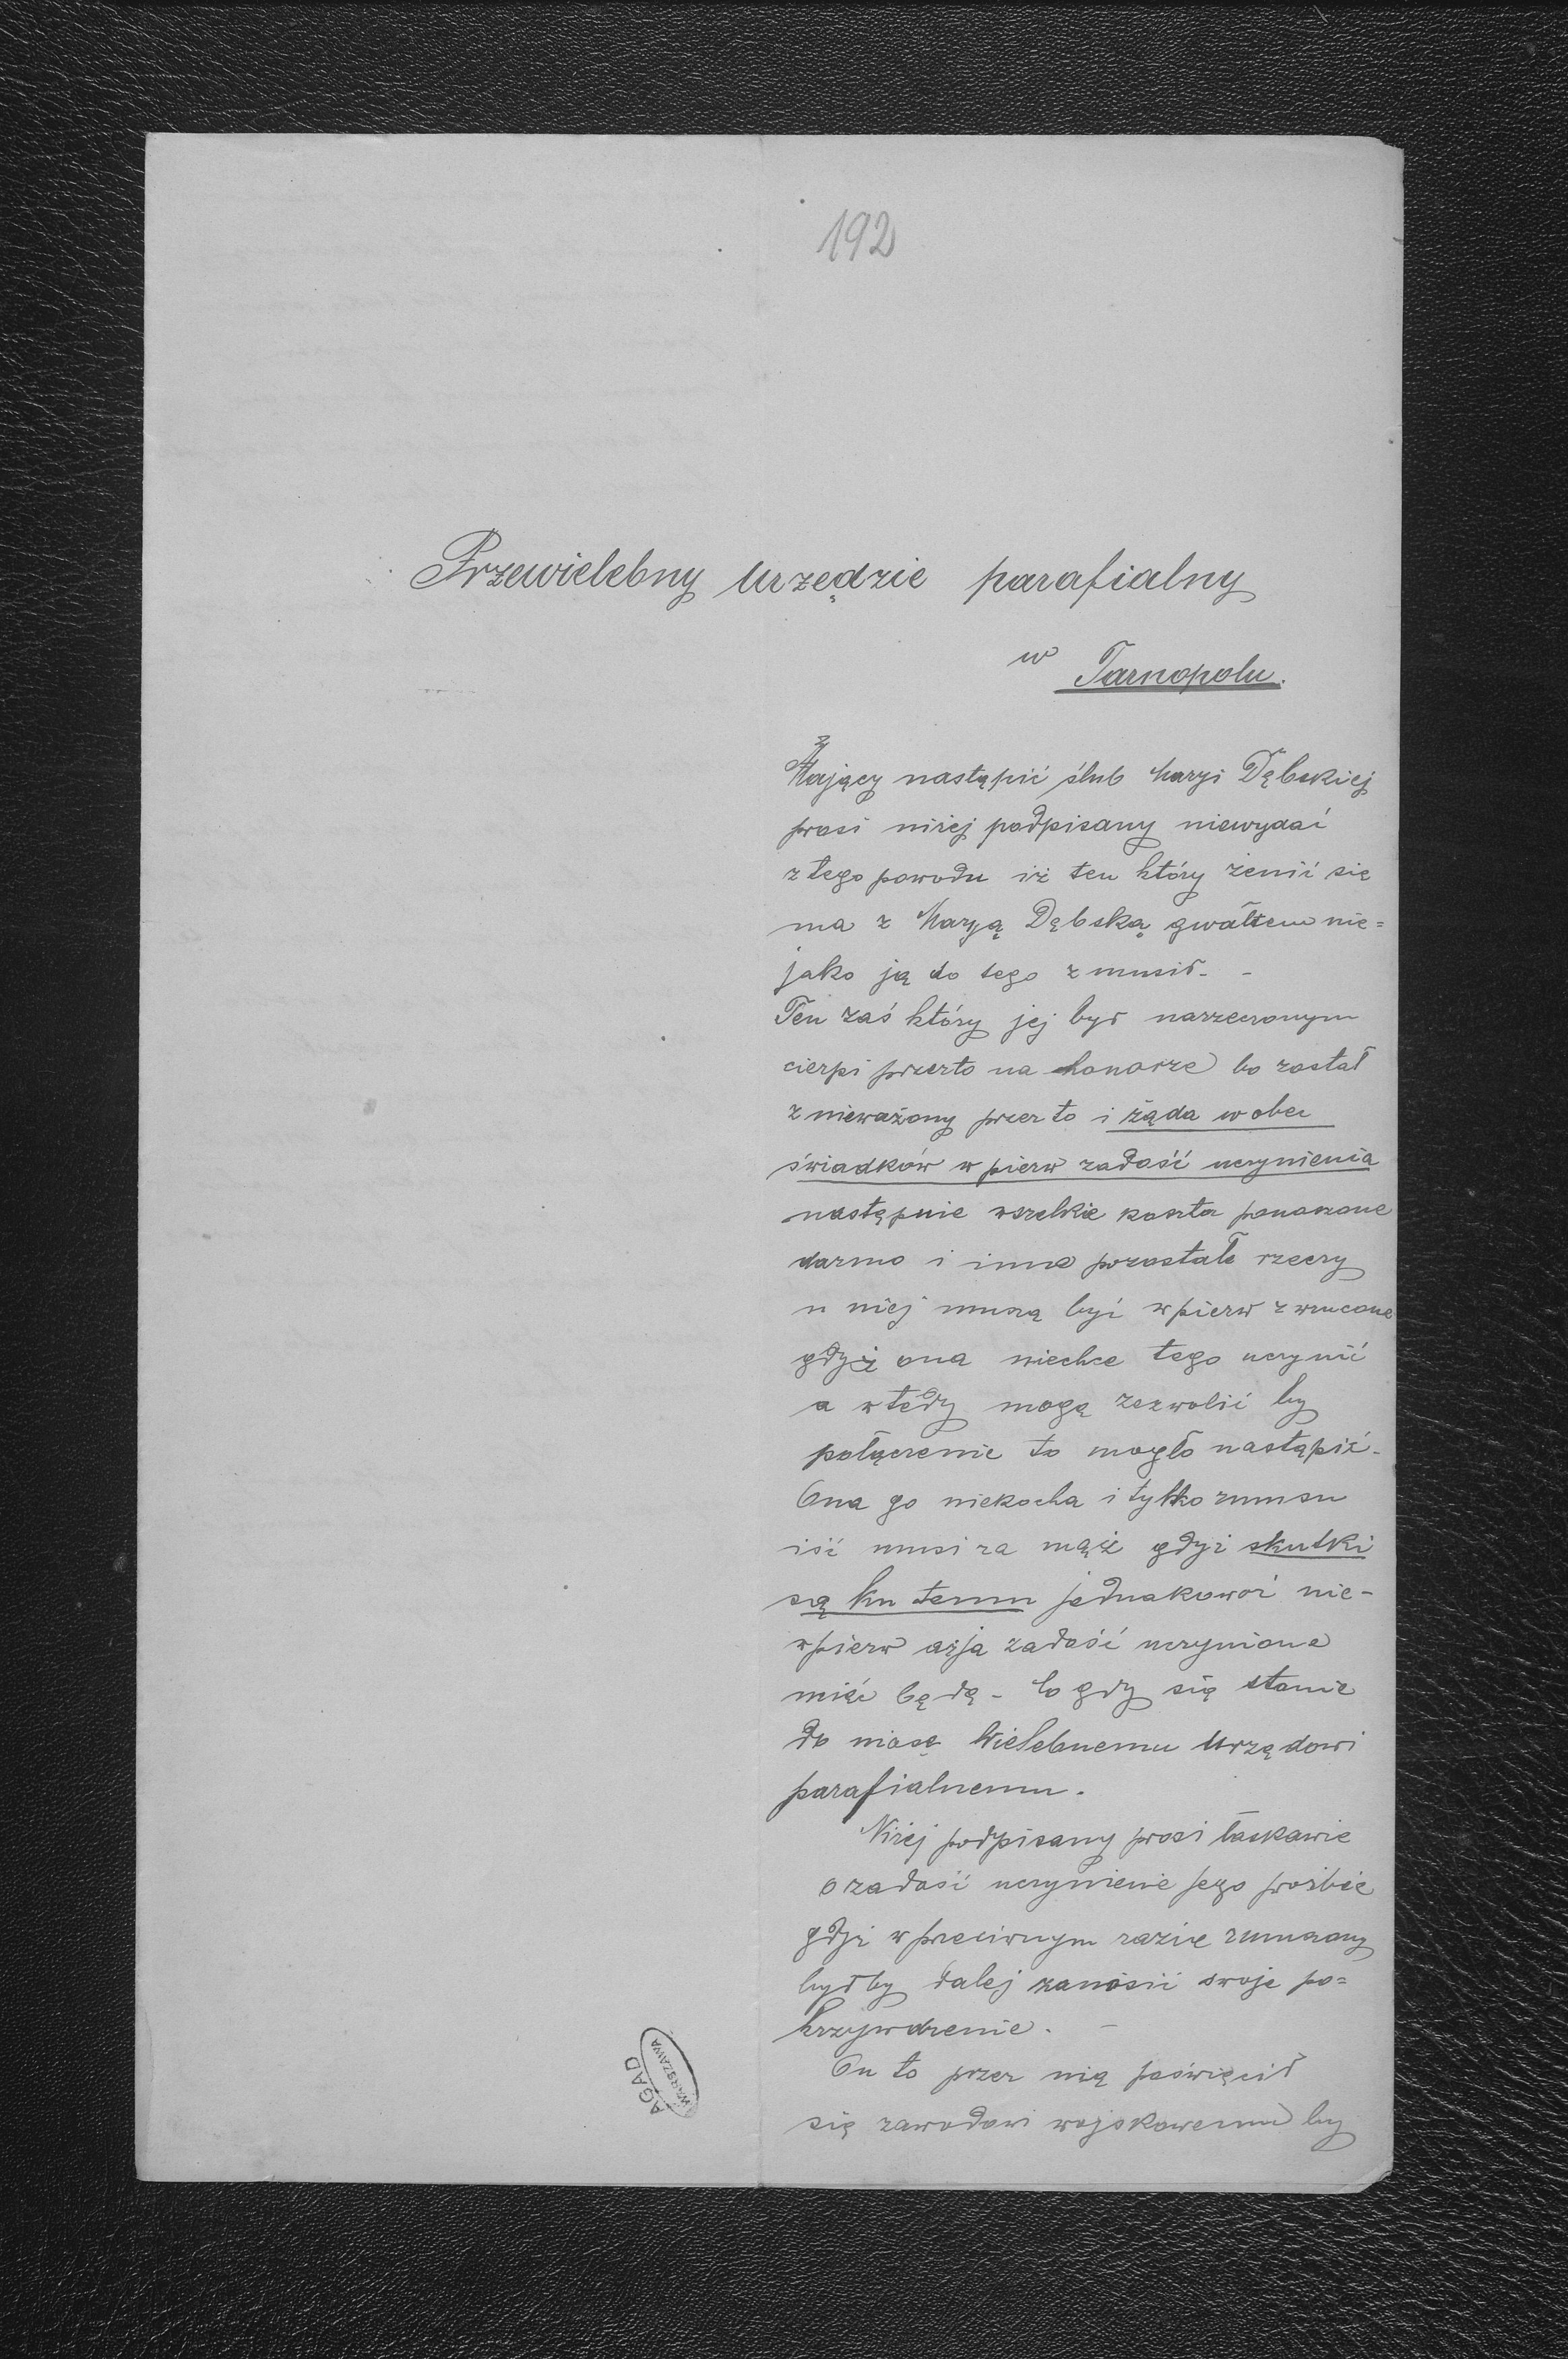 192
Przewielebny Urzędzie parafialny
w Tarnopolu.
Mający nastąpić ślub Maryi Dębskiej
prosi niżej podpisany niewydać
z tego powodu iż ten który żenić się
ma z Maryą Dębską gwałtem nie=
jako ją do tego zmusił. -
Ten zaś który jej był narzeczonym
cierpi przezto na honorze bo został
znieważony przez to i żąda wobec
świadków w pierw zadość uczynienia
następnie wszelkie koszta ponoszone
darmo i inne pozostałe rzeczy
u niej muszą być wpierw zwrucone
gdyż ona niechce tego uczynić
a wtedy mogę zezwolić by
połączenie to mogło nastąpić -
Ona go niekocha i tylko zmusu
iść musi za mąż gdyż skutki
są ku temu jednakowoż nie-
wpierw aż ja zadość uczynione
mieć będę - to gdy się stanie
do niosę Wielebnemu Urzędowi
parafialnemu.
Niżej podpisany prosi łaskawie
o zadość uczynienie jego prośbie
gdyż w przeciwnym razie zmuszony
byłby dalej zanosić swoje po=
krzywdzenie. -
On to przez nią poświęcił
się zawodowi wojskowemu by
AGAD
WARSZAWA